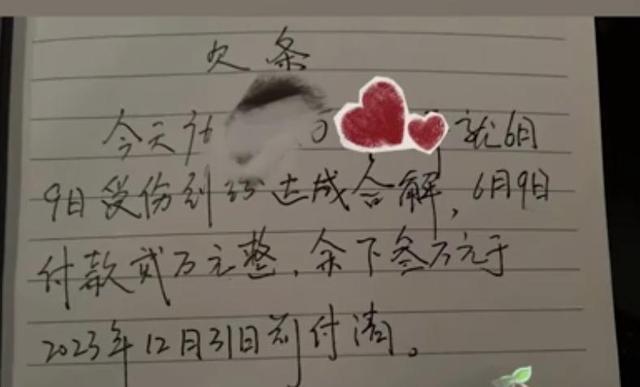 欠条
今天 就6月
9日受伤到 达成合解,6月9日
付款贰万元整,余下叁万元于
2023年12月31日前付清。